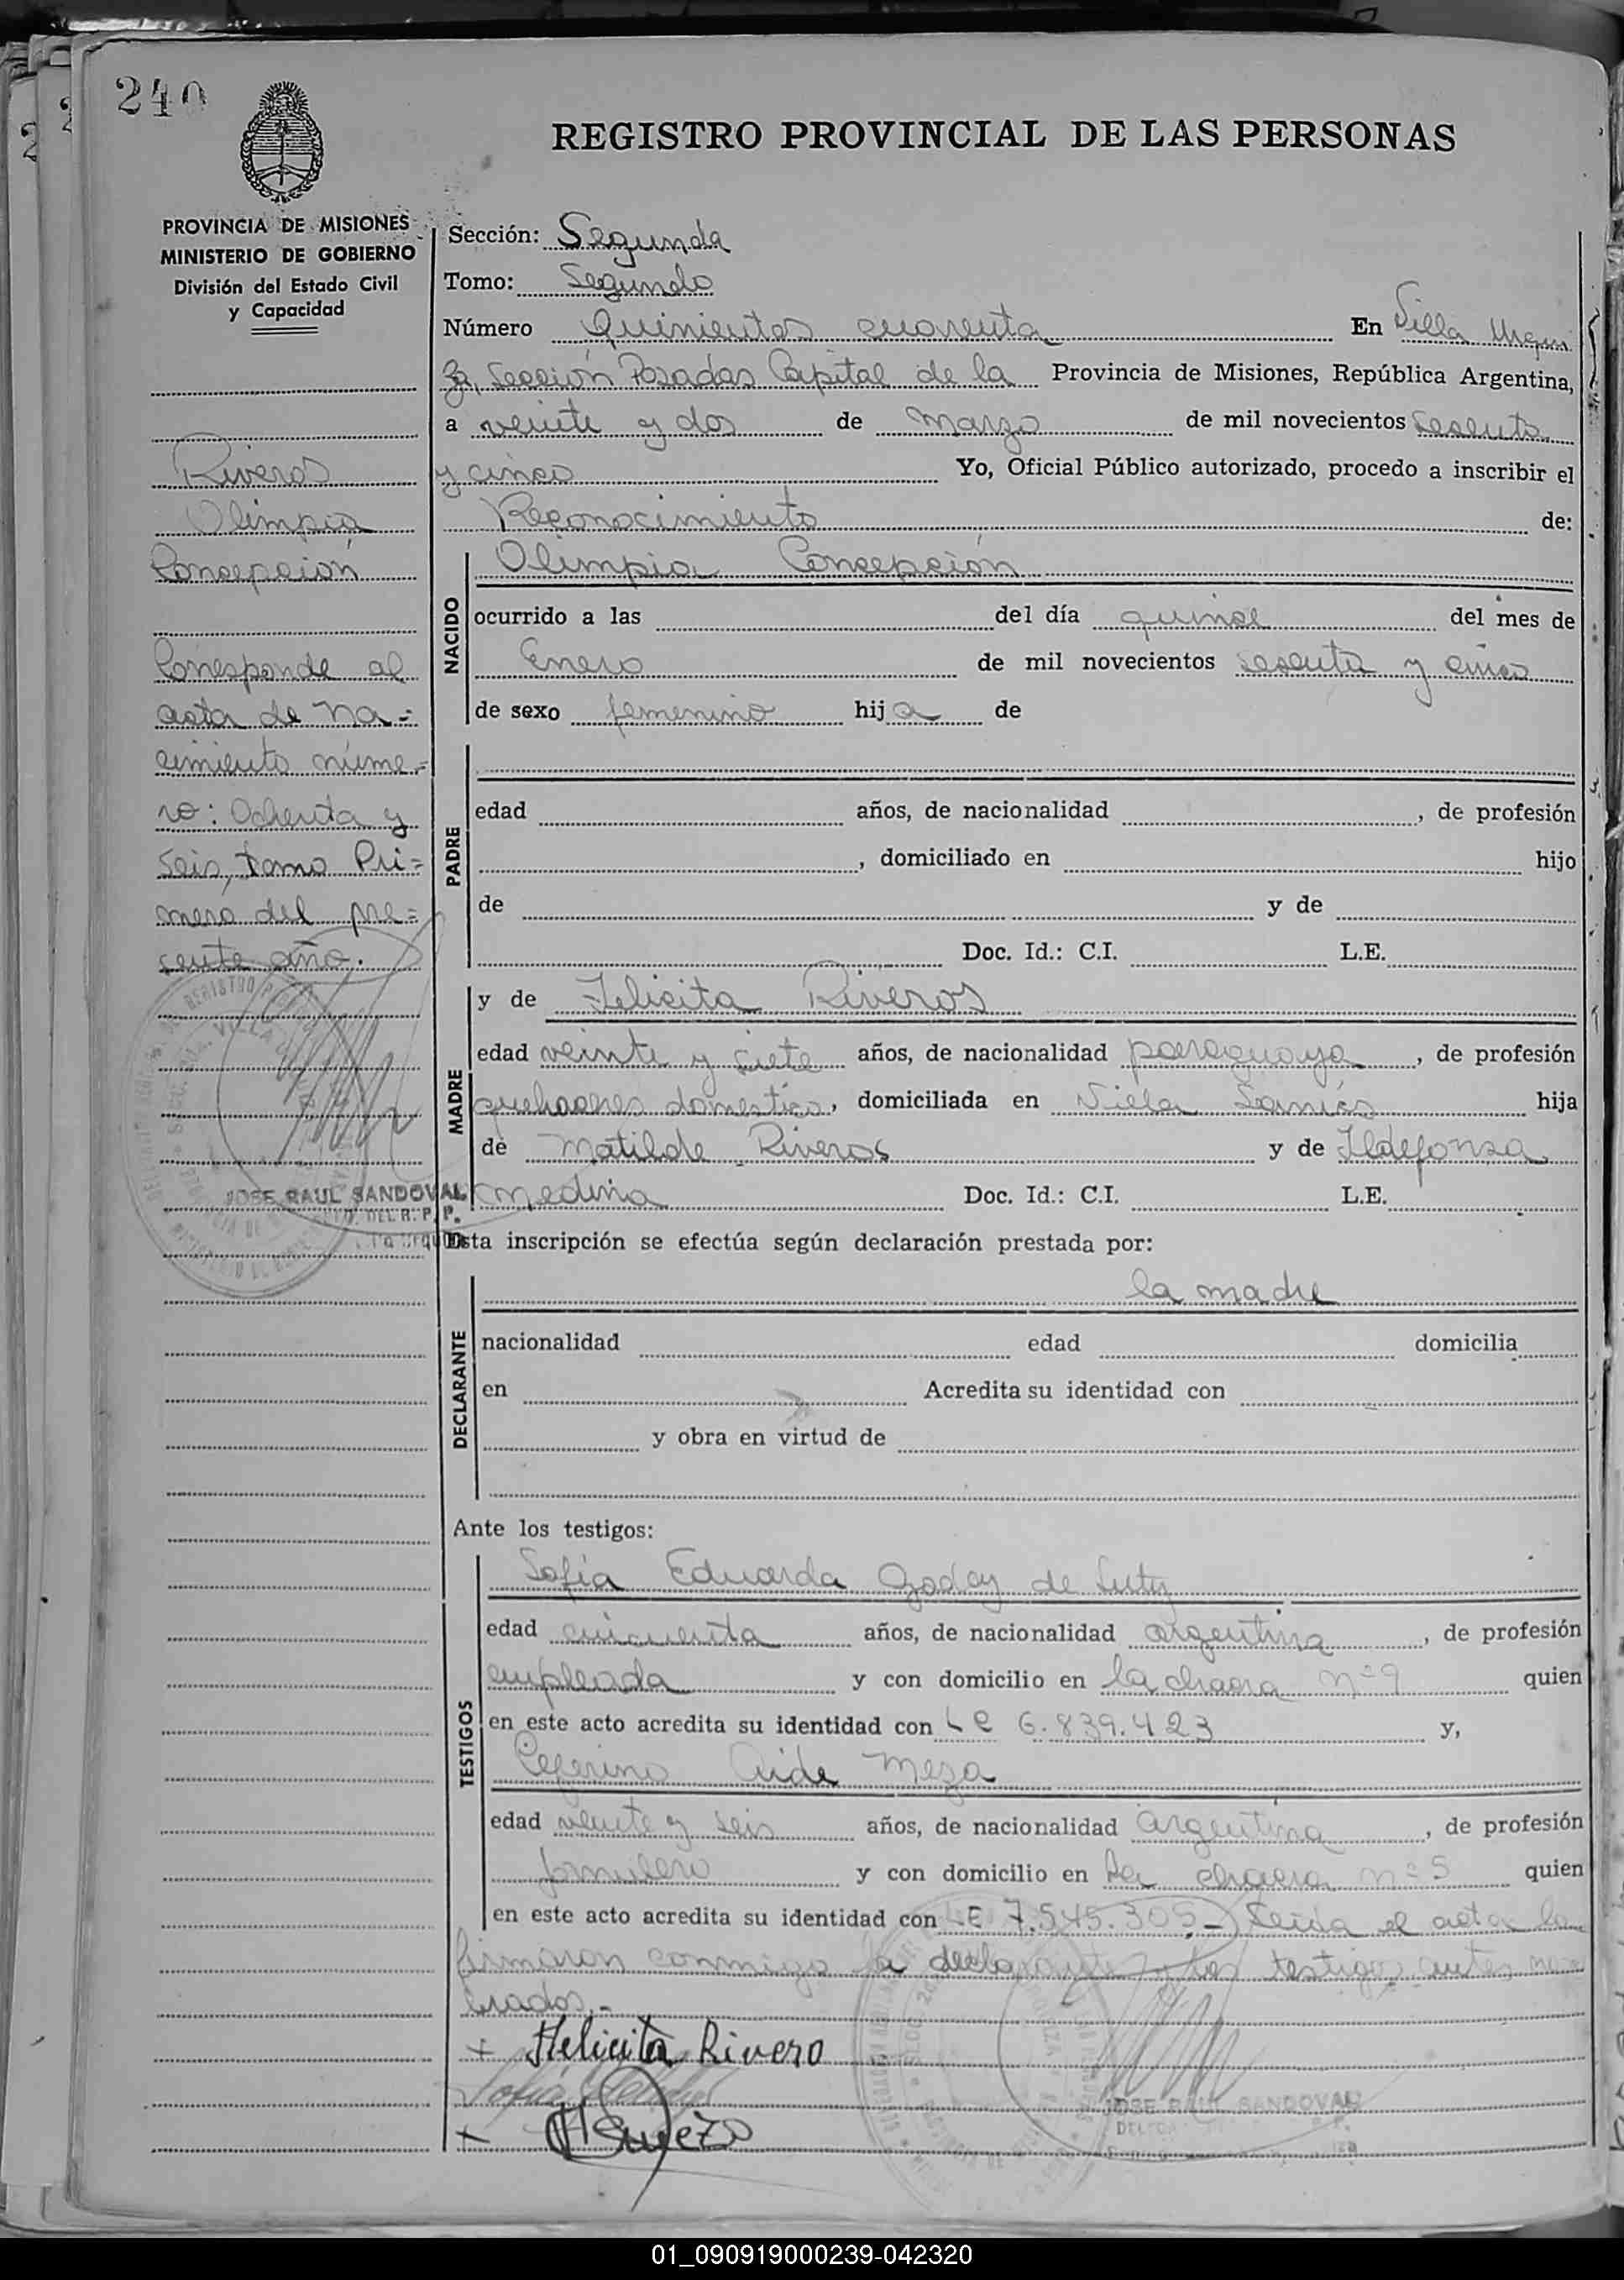 240
REGISTRO PROVINCIAL DE LAS PERSONAS
PROVINCIA DE MISIONES
MINISTERIO DE GOBIERNO
División del Estado Civil
y Capacidad
Riveros
Olimpia
Concepción
Corresponde al
acta de na=
cimiento núme=
ro: Ochenta y
seis, tomo Pri=
mero del pre=
sente año.
JOSE RAUL SANDOVAL
DEL R. P. P.
Sección: Segunda
Tomo: Segundo
Número Quinientos cuarenta En Villa Urqui
za, Sección Posadas Capital de la Provincia de Misiones, República Argentina,
a veinte y dos de marzo de mil novecientos sesenta
y cinco Yo, Oficial Público autorizado, procedo a inscribir el
Reconocimiento de:
NACIDO
Olimpia Concepción
ocurrido a las del día quince del mes de
Enero de mil novecientos sesenta y cinco
de sexo femenino hija de
PADRE
edad años, de nacionalidad , de profesión
, domiciliado en hijo
de y de
Doc. Id.: C.I. L.E.
MADRE
y de Felicita Riveros
edad veinte y siete años, de nacionalidad paraguaya, de profesión
quehaceres domestico, domiciliada en Villa hija
de Matilde Riveros y de Ildefonsa
medina Doc. Id.: C.I. L.E.
Esta inscripción se efectúa según declaración prestada por:
DECLARANTE
la madre
nacionalidad edad domicilia
en Acredita su identidad con
y obra en virtud de
Ante los testigos:
TESTIGOS
Sofía Eduarda Godoy de
edad cincuenta años, de nacionalidad argentina, de profesión
empleada y con domicilio en la chacra nº 9 quien
en este acto acredita su identidad con LC 6.839.423 y,
Ceferino Aide Meza
edad veinte y seis años, de nacionalidad argentina, de profesión
jornalero y con domicilio en la chacra nº 5 quien
en este acto acredita su identidad con LE 7.545.305 - Leída el acta la
firmaron conmigo la declarante y los testigos antes nom
brados.-
+ Felicita Rivero
+
JOSE RAUL SANDOVAL
01_090919000239-042320